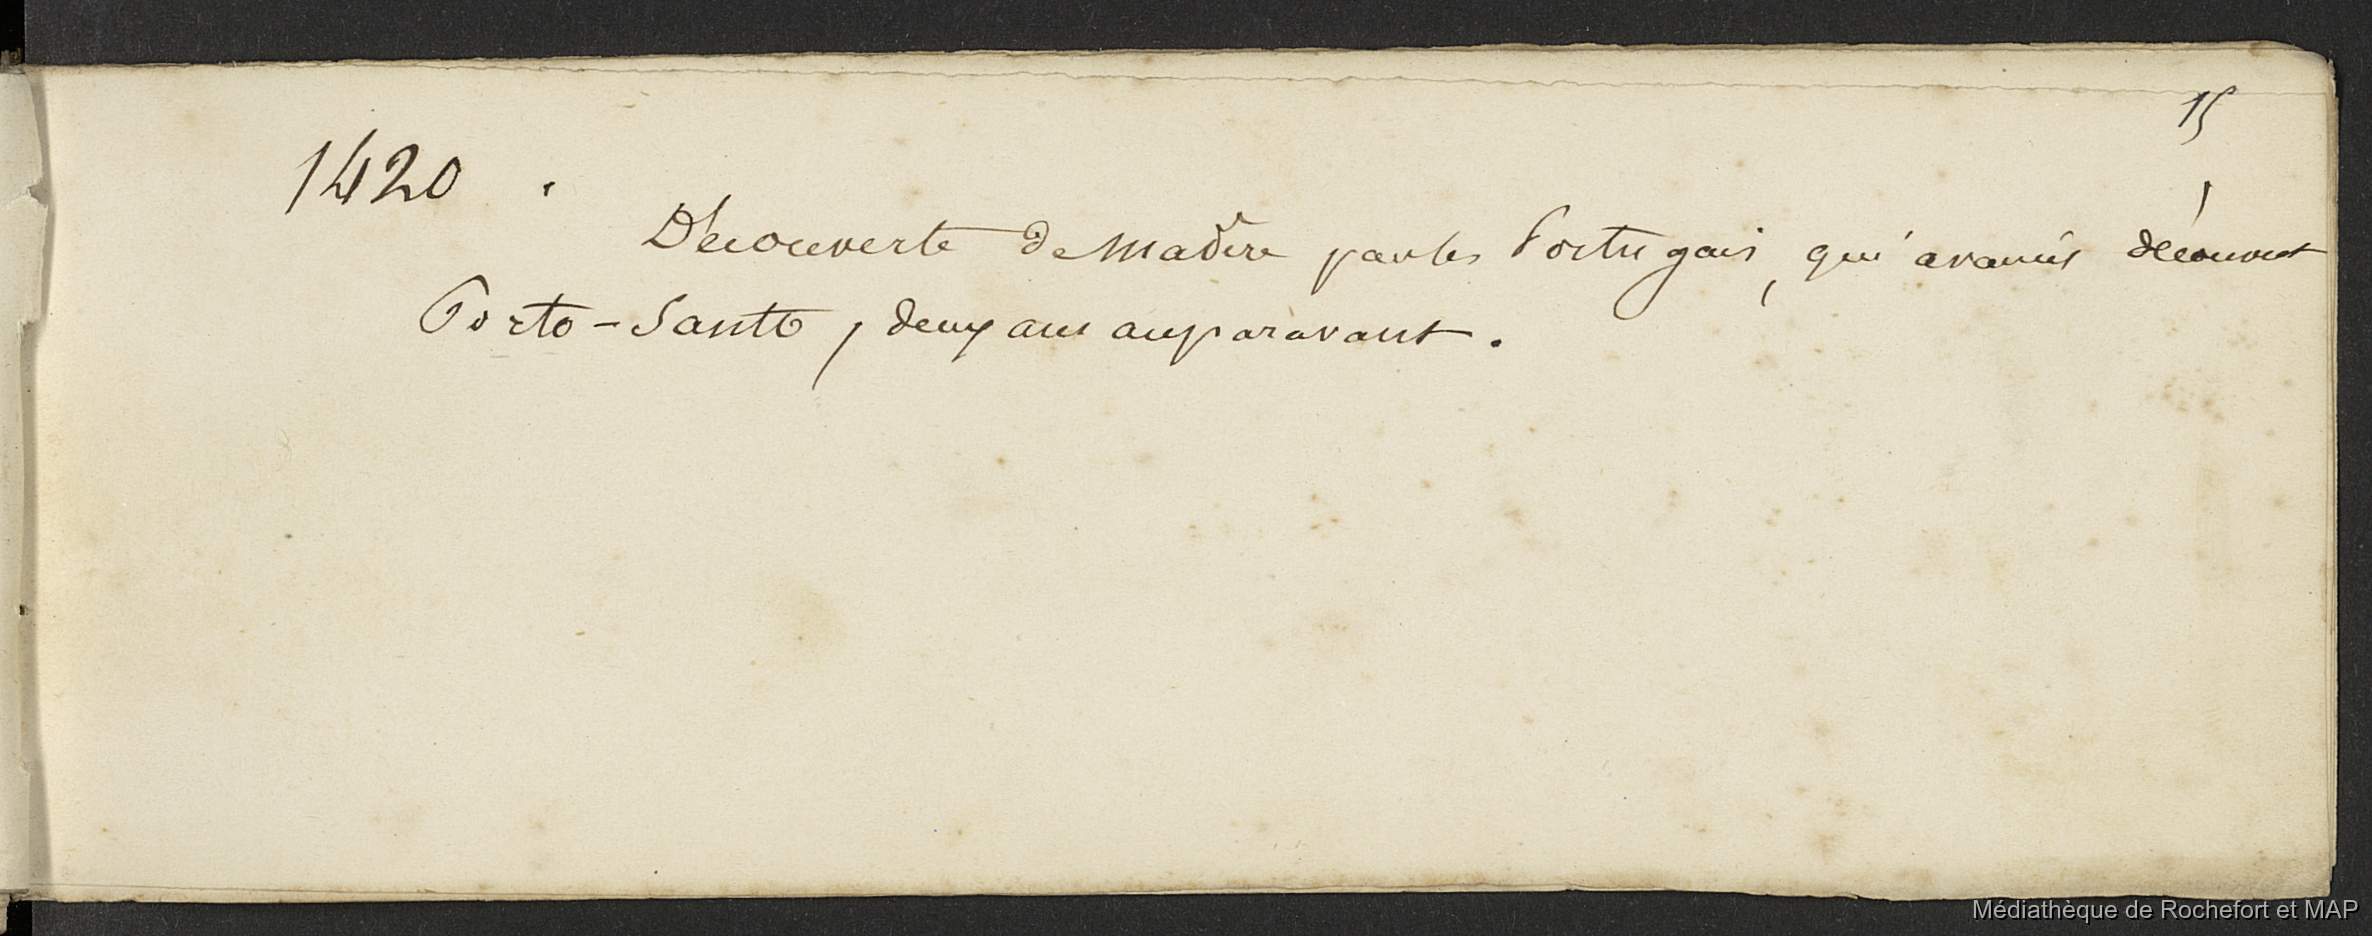 15
1420.
Découverte de Madère par les Portugais, qui avaient découvert
Porto-Santo, deux ans auparavant.
Médiathèque de Rochefort et MAP